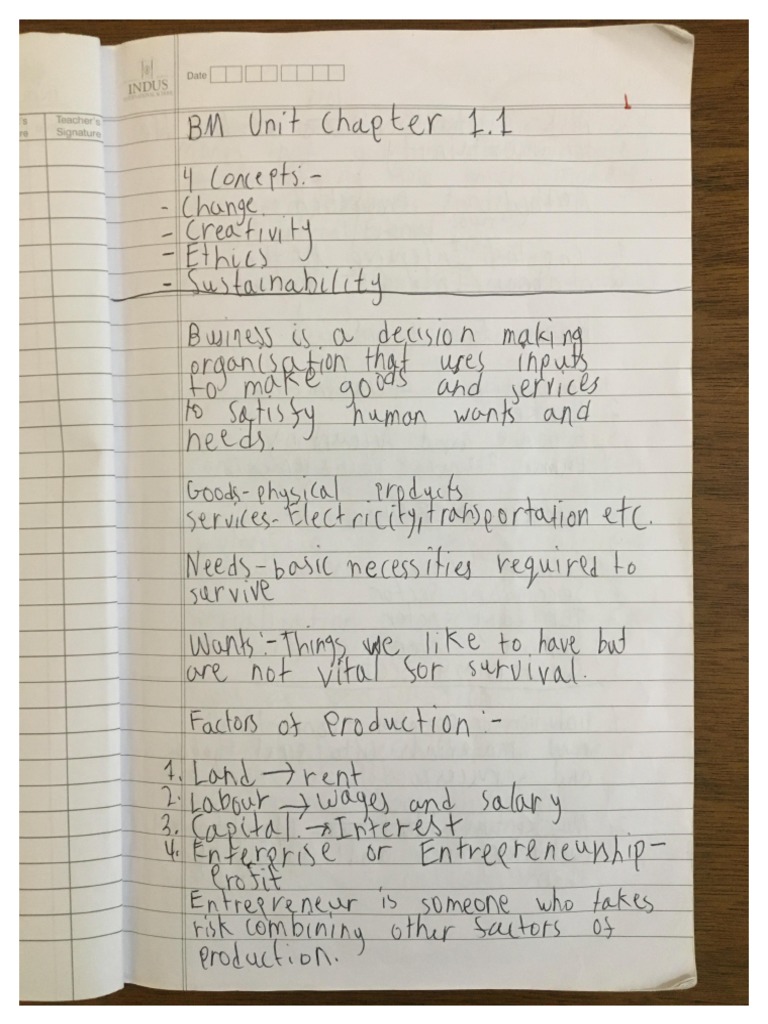 's
re
Teacher's
Signature
INDUS
Date
1
BM Unit Chapter 1.1
4 Concepts:-
- Change
- Creativity
- Ethics
- Sustainability
Business is a decision making
organisation that uses inputs
to make goods and services
to satisfy human wants and
needs.
Goods-physical products
services-Electricity,transportation etc.
Needs-basic necessities required to
survive
Wants:-Things we like to have but
are not vital for survival.
Factors of Production:-
1. Land → rent
2. Labour → wages and salary
3. Capital → Interest
4. Enterprise or Entrepreneurship-
Profit
Entrepreneur is someone who takes
risk combining other factors of
production.